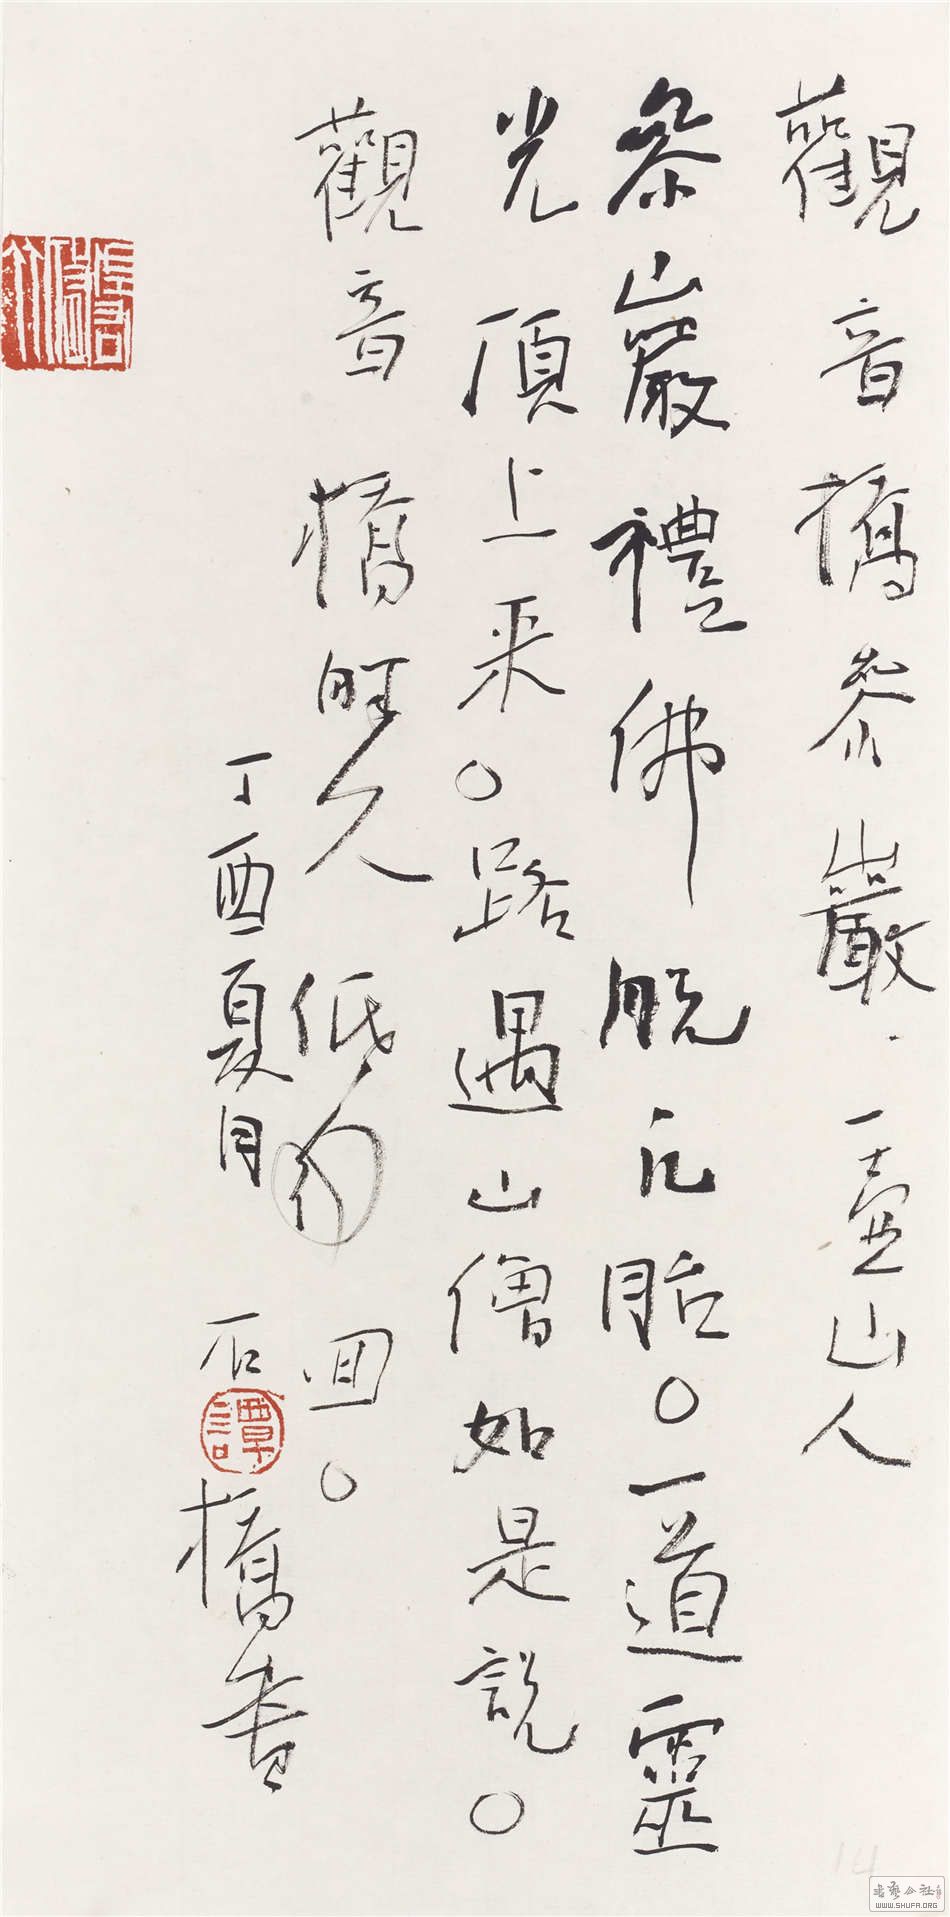 觀音橋參巖.一壺山人
參山巖禮佛脫凡胎。一道靈
光頂上來。路遇山僧如是說。
觀音橋畔久低回。
丁酉夏月 石橋書
譚
14
書藝公社
WWW.SHUFA.ORG